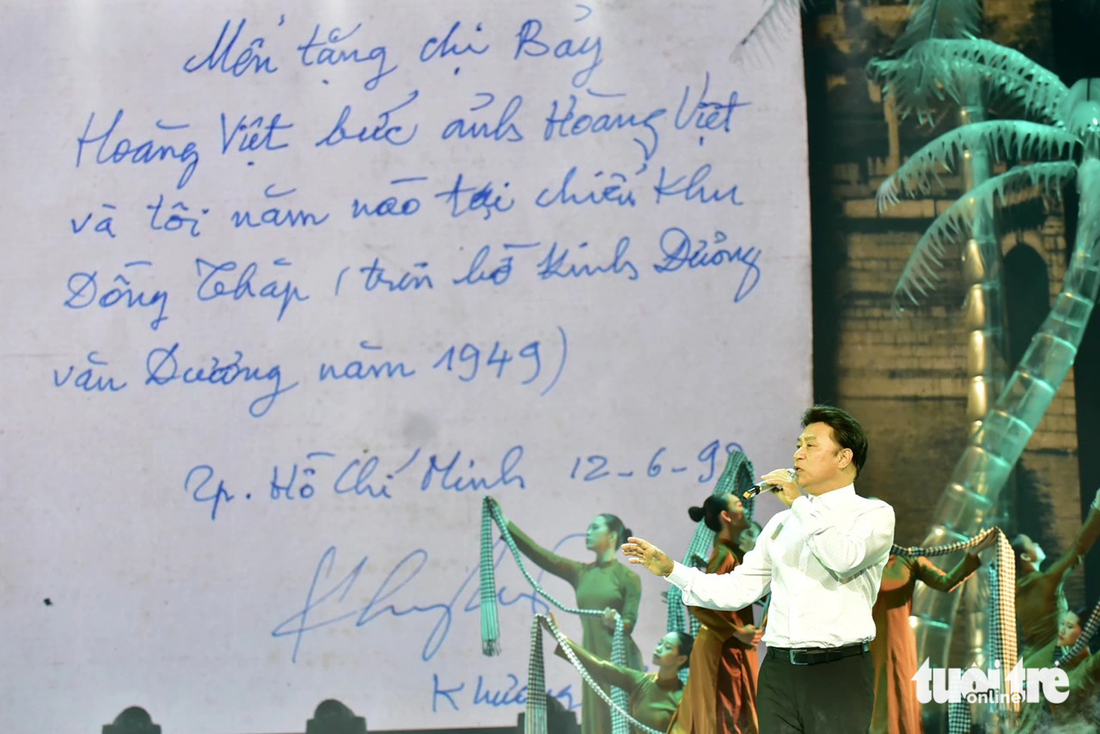 Mến tặng chị Bảy
Hoàng Việt bức ảnh Hoàng Việt
và tôi năm nào tại chiến khu
Đồng Tháp (trên bờ Kinh Dương
văn Dương năm 1949)
Tp. Hồ Chí Minh 12-6-9
Khương
tuổi trẻ
online